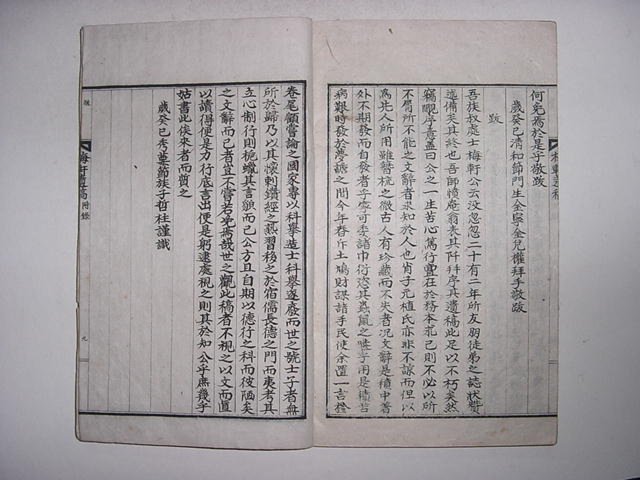 何免焉於是乎敬跋
歲癸巳清和節門生金寧金兌權拜手敬跋
跋
吾族叔處士梅軒公云沒忽忽二十有二年所友弱徒弟之誌狀贊
述備矣其終也吾師積庵翁表其阡拜序其遺稿此足以不朽矣然
竊覵序意蓋曰公之一生苦心篤行亶在於務本求己則不必以所
不屑所不能之文辭者求知於人也肯子元植氏亦非不諒而但以
為先人所用雖瞀梳之微古人有珍藏而不失者況文辭是積中著
外不期發而自發者乎寧可委諸巾衍恣其蟲鼠之嚙乎用是積苦
病艱時發於夢讝之間今年春斥土鳩財謀諸手民使余置一言於
卷尾顧嘗論之國家專以科擧造士科擧遂廢而世之號士子者無
所於歸乃以其懷刺鑽經之熱習移之於宿儒長德之門而夷考其
立心制行則梔蠟其言貌而已公方且自期以德行之科而彼陋矣
之文辭而已者豈不嘗若免焉哉世之觀此稿者不視之以文而直
以讀得便是力行底書出便是躬逮處視之則其於如公乎庶幾乎
姑書此俟來者而質之
歲癸巳秀葽節族子哲柱謹識
梅軒遺稿
附錄
九